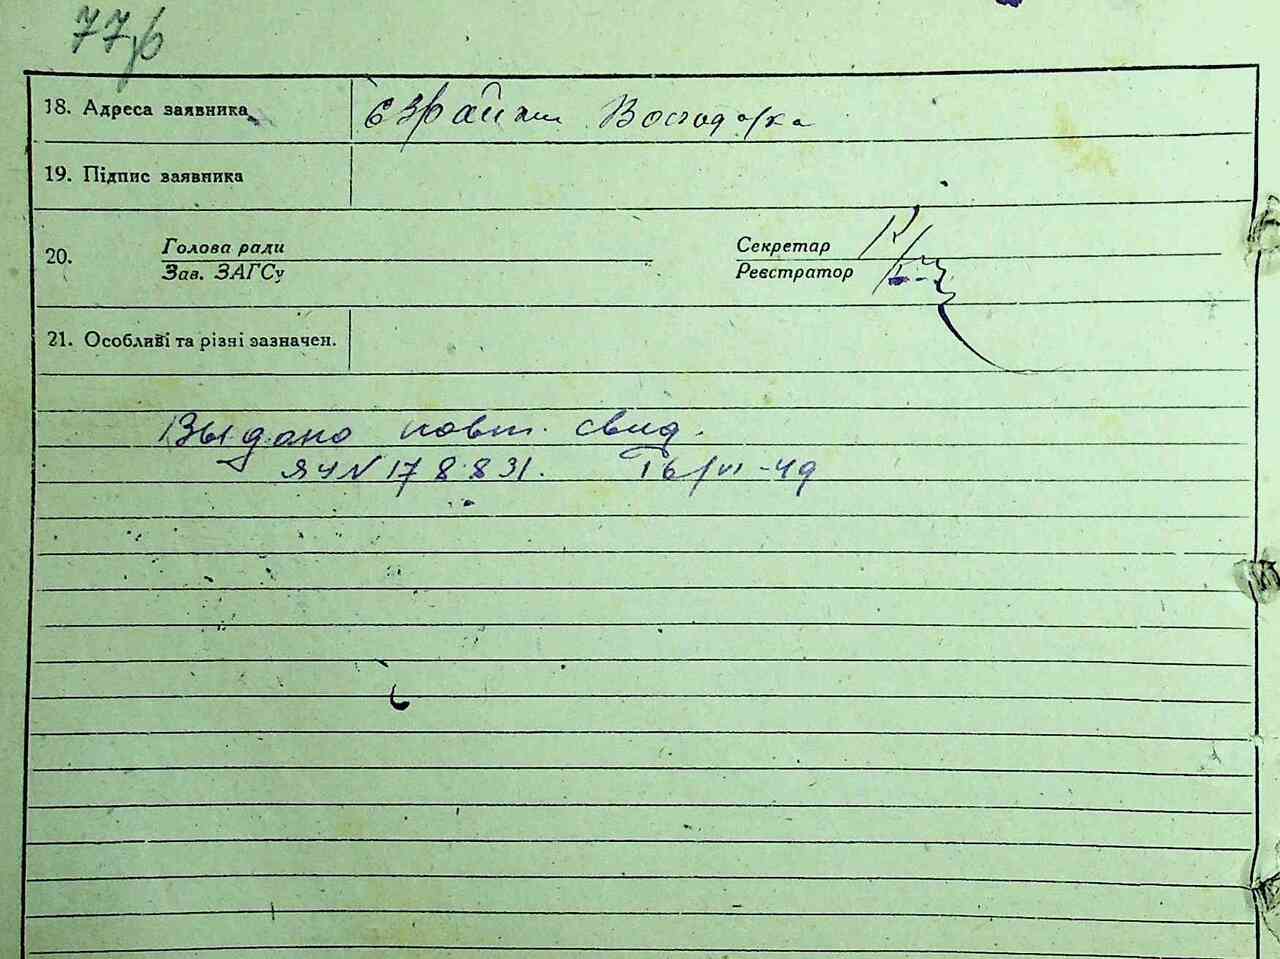 77
18. Адреса заявника
19. Підпис заявника
20. Голова ради Секретар
Зав. ЗАГСу Реєстратор
21. Особливі та різні зазначен.
Выдано повт. свид.
ЯЧ N 178831. 16/VI-49